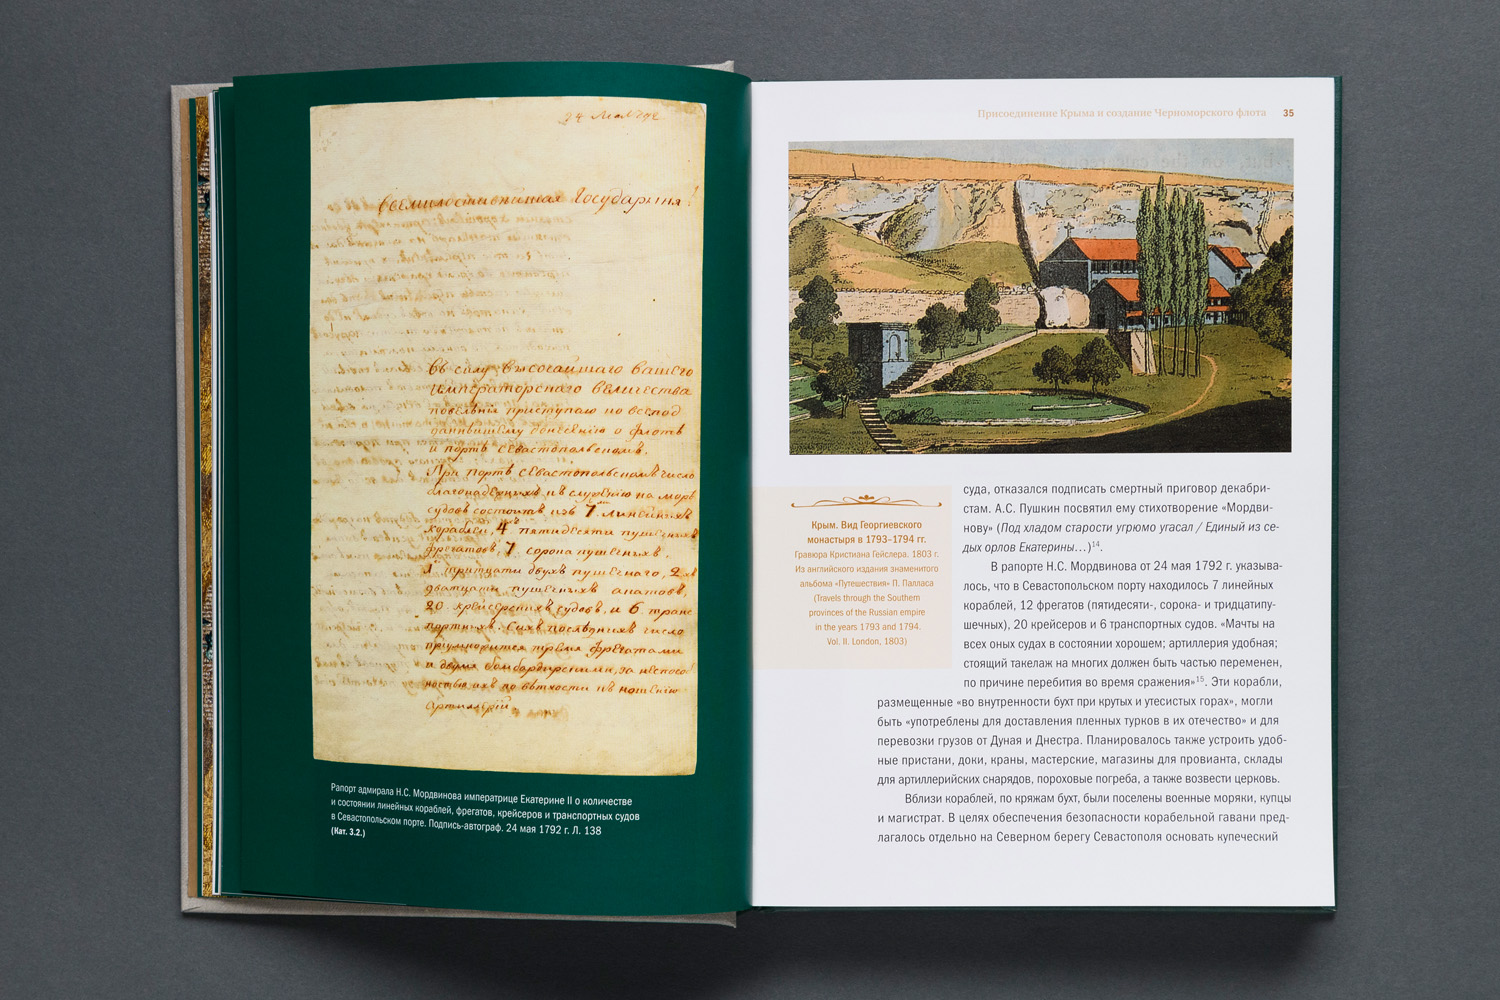 24 Мая 792
Всемилостивѣйшая Государыня!
Въ силу высочайшаго вашего
императорскаго величества
повелѣнiя приступаю по всепод
даннѣйшему донесенiю о флотѣ
и портѣ севастопольскомъ.
При портѣ севастопольскомъ число
благонадежныхъ къ служенiю на морѣ
судовъ состоитъ изъ 7 линейныхъ
кораблей, 4 пятидесяти пушечныхъ
фрегатовъ, 7 сорока пушечныхъ,
1 тритцати двухъ пушечнаго, 2хъ
дватцати пушечныхъ
20 крейсерскихъ судовъ, и 6 транс
портныхъ. Сихъ послѣднихъ число
приумножится тремя фрегатами
и двумя бомбардирскими, за неспосо
ностью ихъ по ветхости къ ношенiю
артиллерiи.
Рапорт адмирала Н.С. Мордвинова императрице Екатерине II о количестве
и состоянии линейных кораблей, фрегатов, крейсеров и транспортных судов
в Севастопольском порте. Подпись-автограф. 24 мая 1792 г. Л. 138
(Кат. 3.2.)
Присоединение Крыма и создание Черноморского флота 35
Крым. Вид Георгиевского
монастыря в 1793–1794 гг.
Гравюра Кристиана Гейслера. 1803 г.
Из английского издания знаменитого
альбома «Путешествия» П. Палласа
(Travels through the Southern
provinces of the Russian empire
in the years 1793 and 1794.
Vol. II. London, 1803)
суда, отказался подписать смертный приговор декабри-
стам. А.С. Пушкин посвятил ему стихотворение «Мордви-
нову» (Под хладом старости угрюмо угасал / Единый из се-
дых орлов Екатерины…)14.
В рапорте Н.С. Мордвинова от 24 мая 1792 г. указыва-
лось, что в Севастопольском порту находилось 7 линейных
кораблей, 12 фрегатов (пятидесяти-, сорока- и тридцатипу-
шечных), 20 крейсеров и 6 транспортных судов. «Мачты на
всех оных судах в состоянии хорошем; артиллерия удобная;
стоящий такелаж на многих должен быть частью переменен,
по причине перебития во время сражения»15. Эти корабли,
размещенные «во внутренности бухт при крутых и утесистых горах», могли
быть «употреблены для доставления пленных турков в их отечество» и для
перевозки грузов от Дуная и Днестра. Планировалось также устроить удоб-
ные пристани, доки, краны, мастерские, магазины для провианта, склады
для артиллерийских снарядов, пороховые погреба, а также возвести церковь.
Вблизи кораблей, по кряжам бухт, были поселены военные моряки, купцы
и магистрат. В целях обеспечения безопасности корабельной гавани пред-
лагалось отдельно на Северном берегу Севастополя основать купеческий